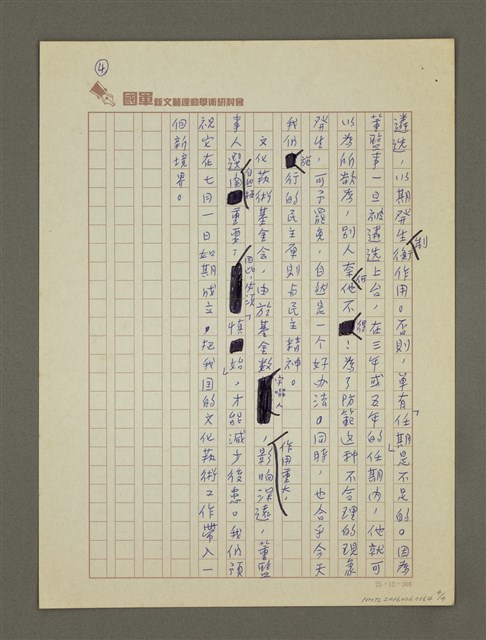 ④
國軍新文藝運動學術研討會
遴选，以期發生衡制作用。否則，單有「任期」是不足的。因為
董監事一旦被遴选上台，在三年或五年的任期內，他就可
以為所欲為，別人奈他不得！為了防範这种不合理的現象
發生，可予罷免，自然是一个好办法。同時，也合乎今天
我們施行的民主原則与民主精神。
文化藝術基金会，由於基金数，作用重大，影响深遠，董監
事人選自然重要，因此，必須「慎始」，才能減少後患。我們預
祝它在七月一日如期成立，把我国的文化藝術工作帶入一
個新境界。
25×12=300